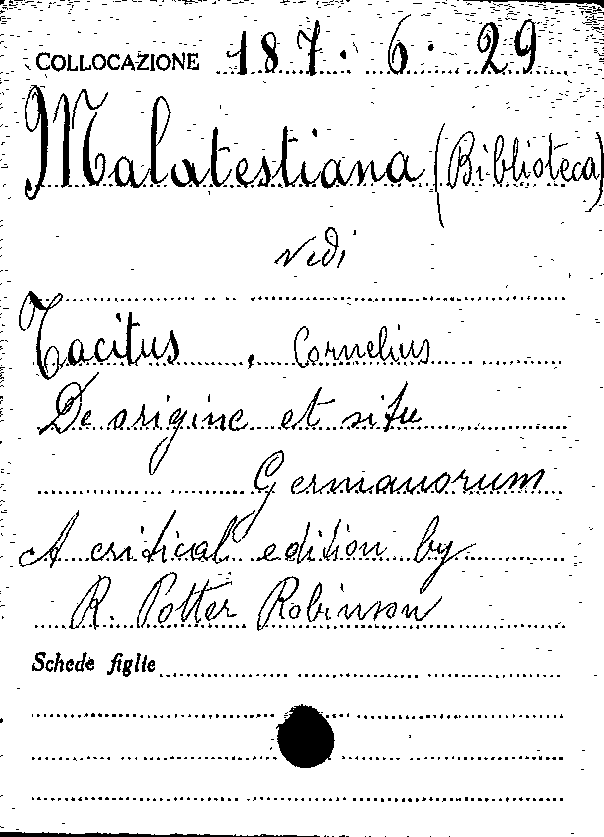 COLLOCAZIONE 187. 6. 29
Malatestiana (Biblioteca)
vedi
Tacitus, Cornelius
De origine et situ
Germanorum
A critical edition by
R. Potter Robinson
Schede figlie